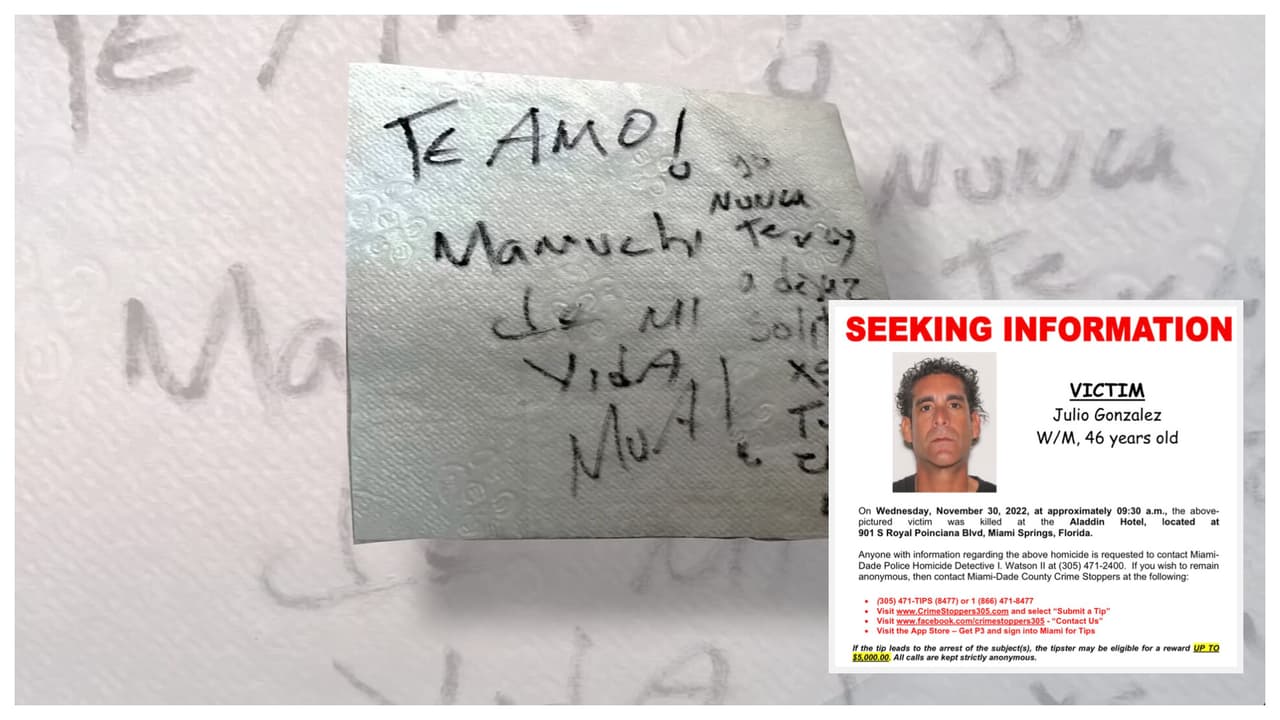 TE AMO!
Mamuchi
de MI
VidA
MuA!
yo
NUNCA
Te voy
a dejaz
Solit
SEEKING INFORMATION
VICTIM
Julio Gonzalez
W/M, 46 years old
On Wednesday, November 30, 2022, at approximately 09:30 a.m., the above-
pictured victim was killed at the Aladdin Hotel, located at
901 S Royal Poinciana Blvd, Miami Springs, Florida.
Anyone with information regarding the above homicide is requested to contact Miami-
Dade Police Homicide Detective I. Watson II at (305) 471-2400. If you wish to remain
anonymous, then contact Miami-Dade County Crime Stoppers at the following:
• (305) 471-TIPS (8477) or 1 (866) 471-8477
• Visit www.CrimeStoppers305.com and select “Submit a Tip”
• Visit www.facebook.com/crimestoppers305 - “Contact Us”
• Visit the App Store – Get P3 and sign into Miami for Tips
If the tip leads to the arrest of the subject(s), the tipster may be eligible for a reward UP TO
$5,000.00. All calls are kept strictly anonymous.